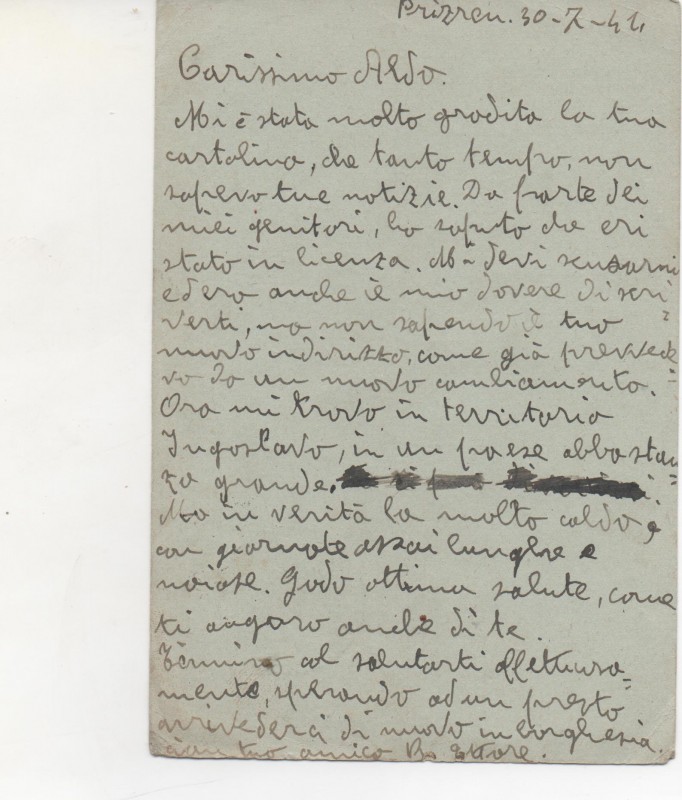 Prizren. 30-7-41
Carissimo Aldo.
Mi è stata molto gradita la tua
cartolina, che tanto tempo, non
sapevo tue notizie. Da parte dei
miei genitori, ho saputo che eri
stato in licenza. Ma devi scusarmi
e dero anche è mio dovere di scri
verti, ma non sapendo il tuo
nuovo indirizzo, come già prevvede=
vo da un nuovo cambiamento.
Ora mi trovo in territorio
Jugoslavo, in un paese abbastan
za grande.
Ma in verità fa molto caldo, e
con giornate assai lunghe e
noiose. Godo ottima salute, come
ti auguro anche di te.
Termino al salutarti affettuosa=
mente, sperando ad un presto
arrivederci di nuovo in borghesia.
tuo amico Ettore.